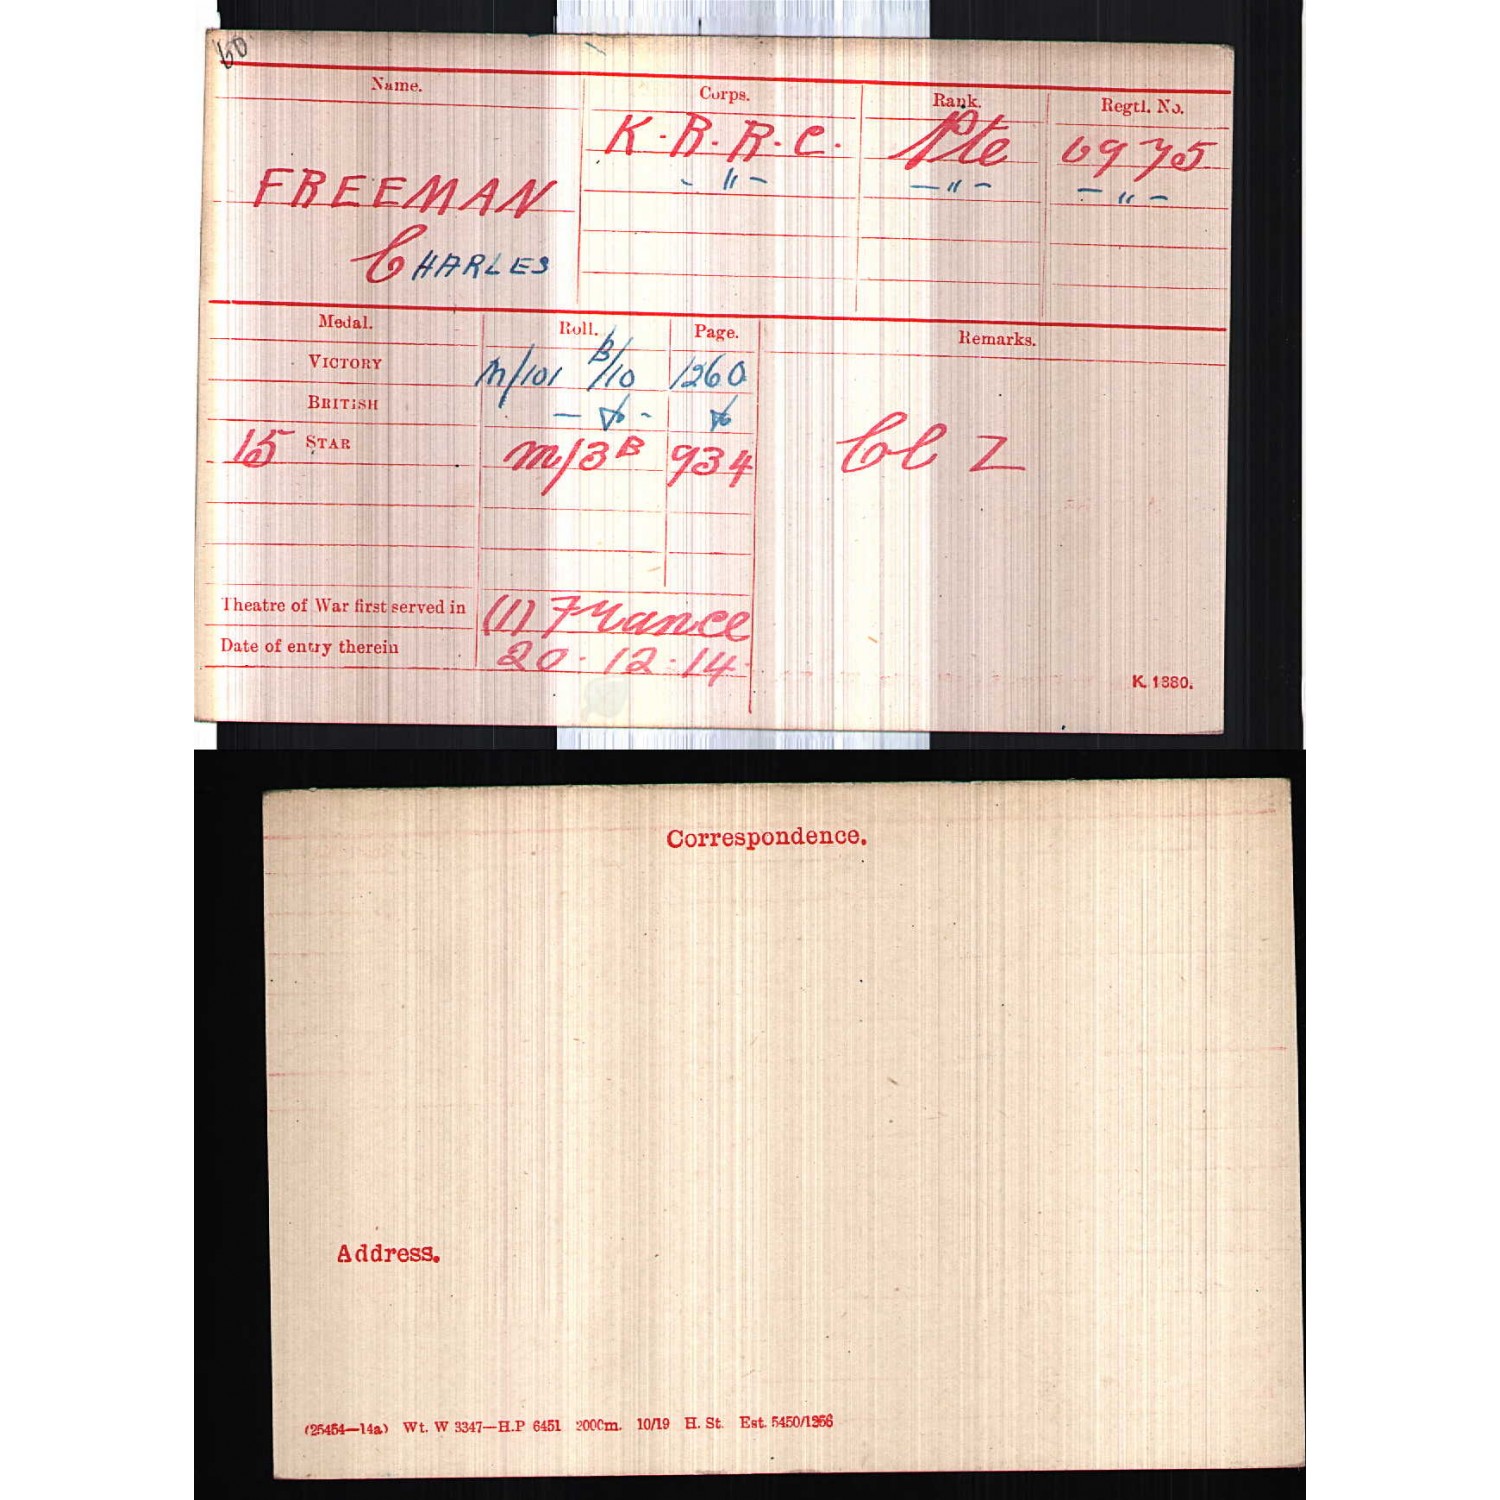 60
Name. Corps. Rank. Regtl. No.
K.R.R.C. Pte 6975
- " - - " - - " -
FREEMAN
CHARLES
Medal. Roll. Page. Remarks.
VICTORY M/101 B/10 1260
BRITISH - do - do
15 STAR M/3B 934
Cl Z
Theatre of War first served in (1) France
Date of entry therein 20.12.14.
K. 1380.
Correspondence.
Address.
(25454—14a) Wt. W 3347—H.P 6451 2000m. 10/19 H. St. Est. 5450/1256